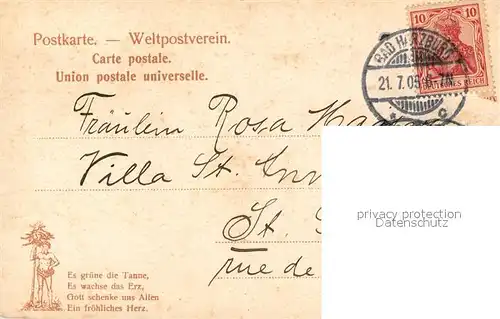 Postkarte. — Weltpostverein.
Carte postale.
Union postale universelle.
10 10
DEUTSCHES REICH
BAD HARZBURG
21.7.05. 6-7N.
c
Fräulein Rosa
Villa St.
St.
rue de
privacy protection
Datenschutz
Es grüne die Tanne,
Es wachse das Erz,
Gott schenke uns Allen
Ein fröhliches Herz.